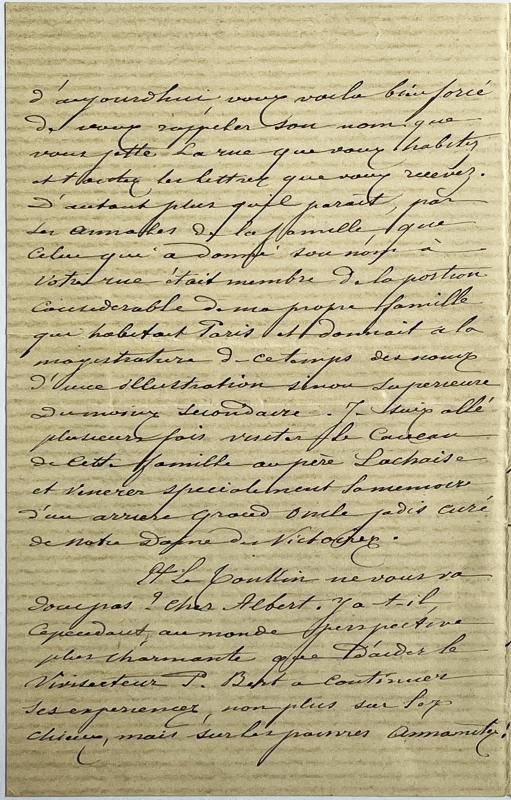 d'aujourdhui vous voila bien forcé
de vous rappeler son nom que
vous jette la rue que vous habitez
et toutes les lettres que vous recevez.
D'autant plus qu'il parait, par
les annales de la famille, que
celui qui a donné son nom à
votre rue était membre de la portion
considerable de ma propre famille
qui habitait Paris et donnait à la
magistrature de ce temps des noms
d'une illustration sinon superieure
du moins secondaire. Je suis allé
plusieurs fois visiter le Caveau
de cette famille au père Lachaise
et venerer specialement la memoire
d'un arriere Grand Oncle jadis curé
de Notre Dame des Victoires.
Et Le Tonkin ne vous va
donc pas? Cher Albert. Y a-t-il
cependant, au monde perspective
plus charmante que d'aider le
Vivisecteur P. Bert a continuer
ses experiences, non plus sur les
chiens, mais sur les pauvres annamites!